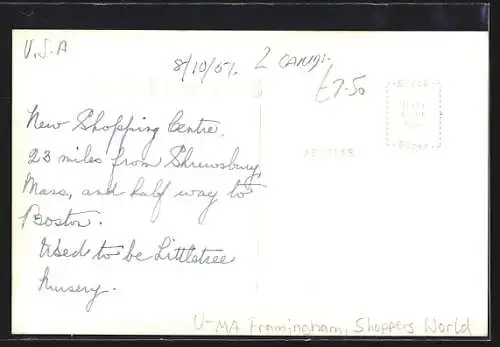 U.S.A
8/10/51. 2 CARDS.
£7.50
New Shopping Centre,
23 miles from Shrewsbury,
Mass, and half way to
Boston.
Used to be Littletree
Nursery.
U-MA Framingham, Shoppers World